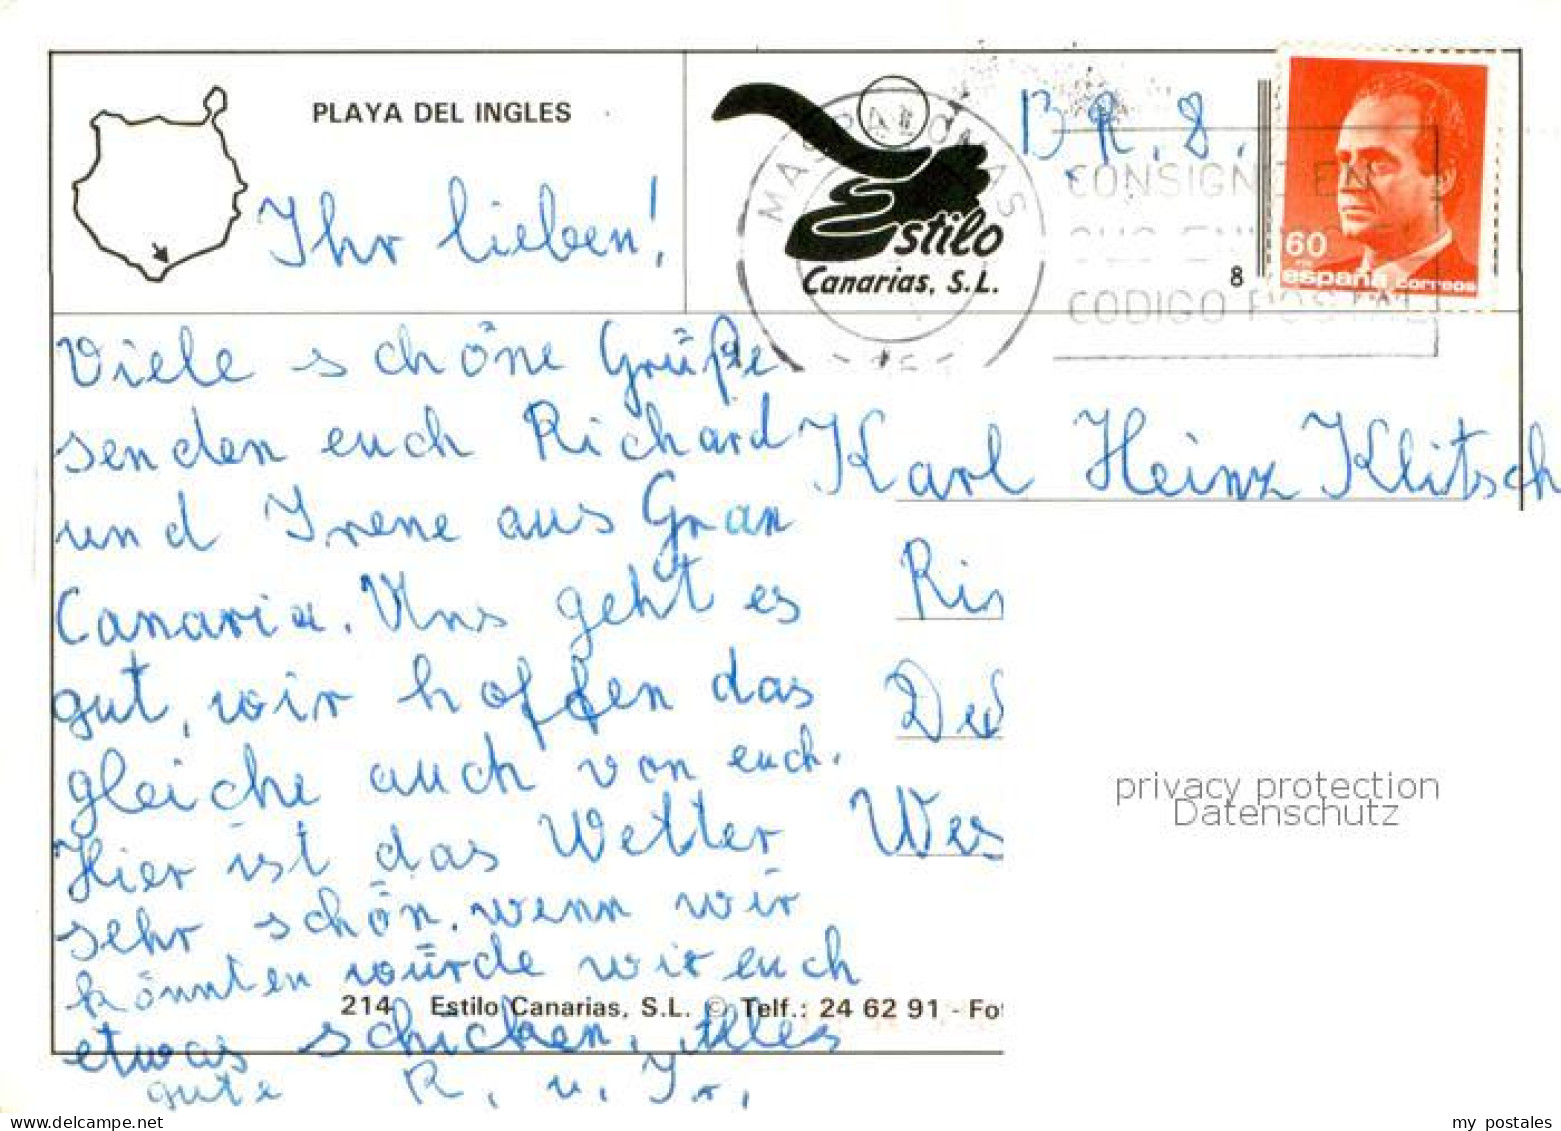 PLAYA DEL INGLES
Ihr lieben!
Estilo
Canarias, S.L.
MASPALOMAS
B.R. 8.
CONSIGNE EN
CODIGO POSTAL
8
60
españa correos
Viele schöne Grüße
senden euch Richard
und Irene aus Gran
Canaria. Uns geht es
gut, wir hoffen das
gleiche auch von euch.
Hier ist das Wetter
sehr schön. wenn wir
könnten würde wir euch
etwas schicken, Alles
gute R. u. Ir.
Karl Heinz Klitsch
Ris
Ded
Wes
privacy protection
Datenschutz
214 Estilo Canarias, S.L. © Telf.: 24 62 91 - Fot
my postales